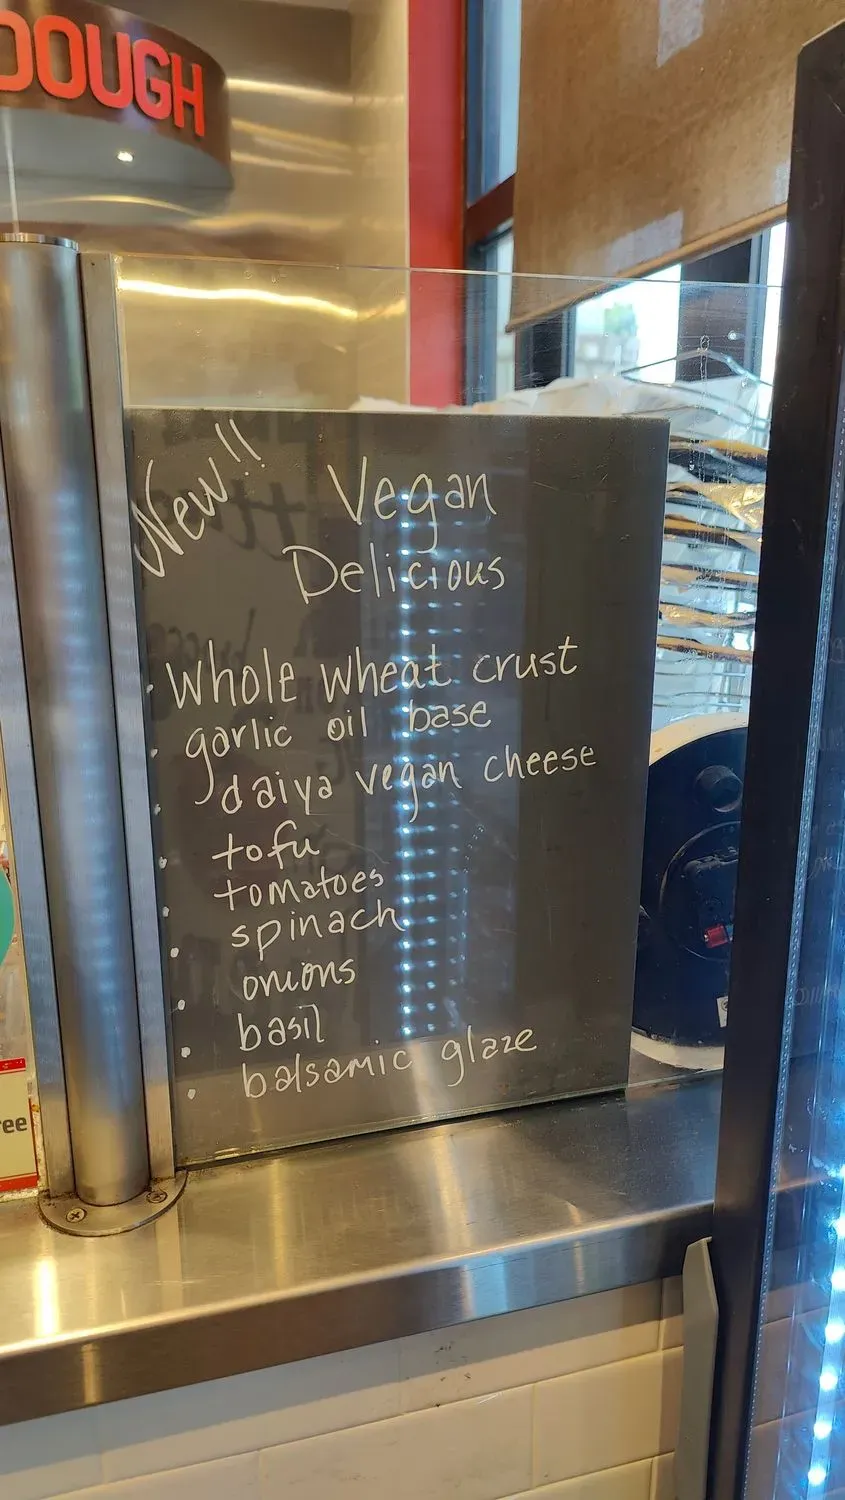 DOUGH
New!!
Vegan
Delicious
Whole wheat crust
garlic oil base
daiya vegan cheese
tofu
tomatoes
spinach
onions
basil
balsamic glaze
ree